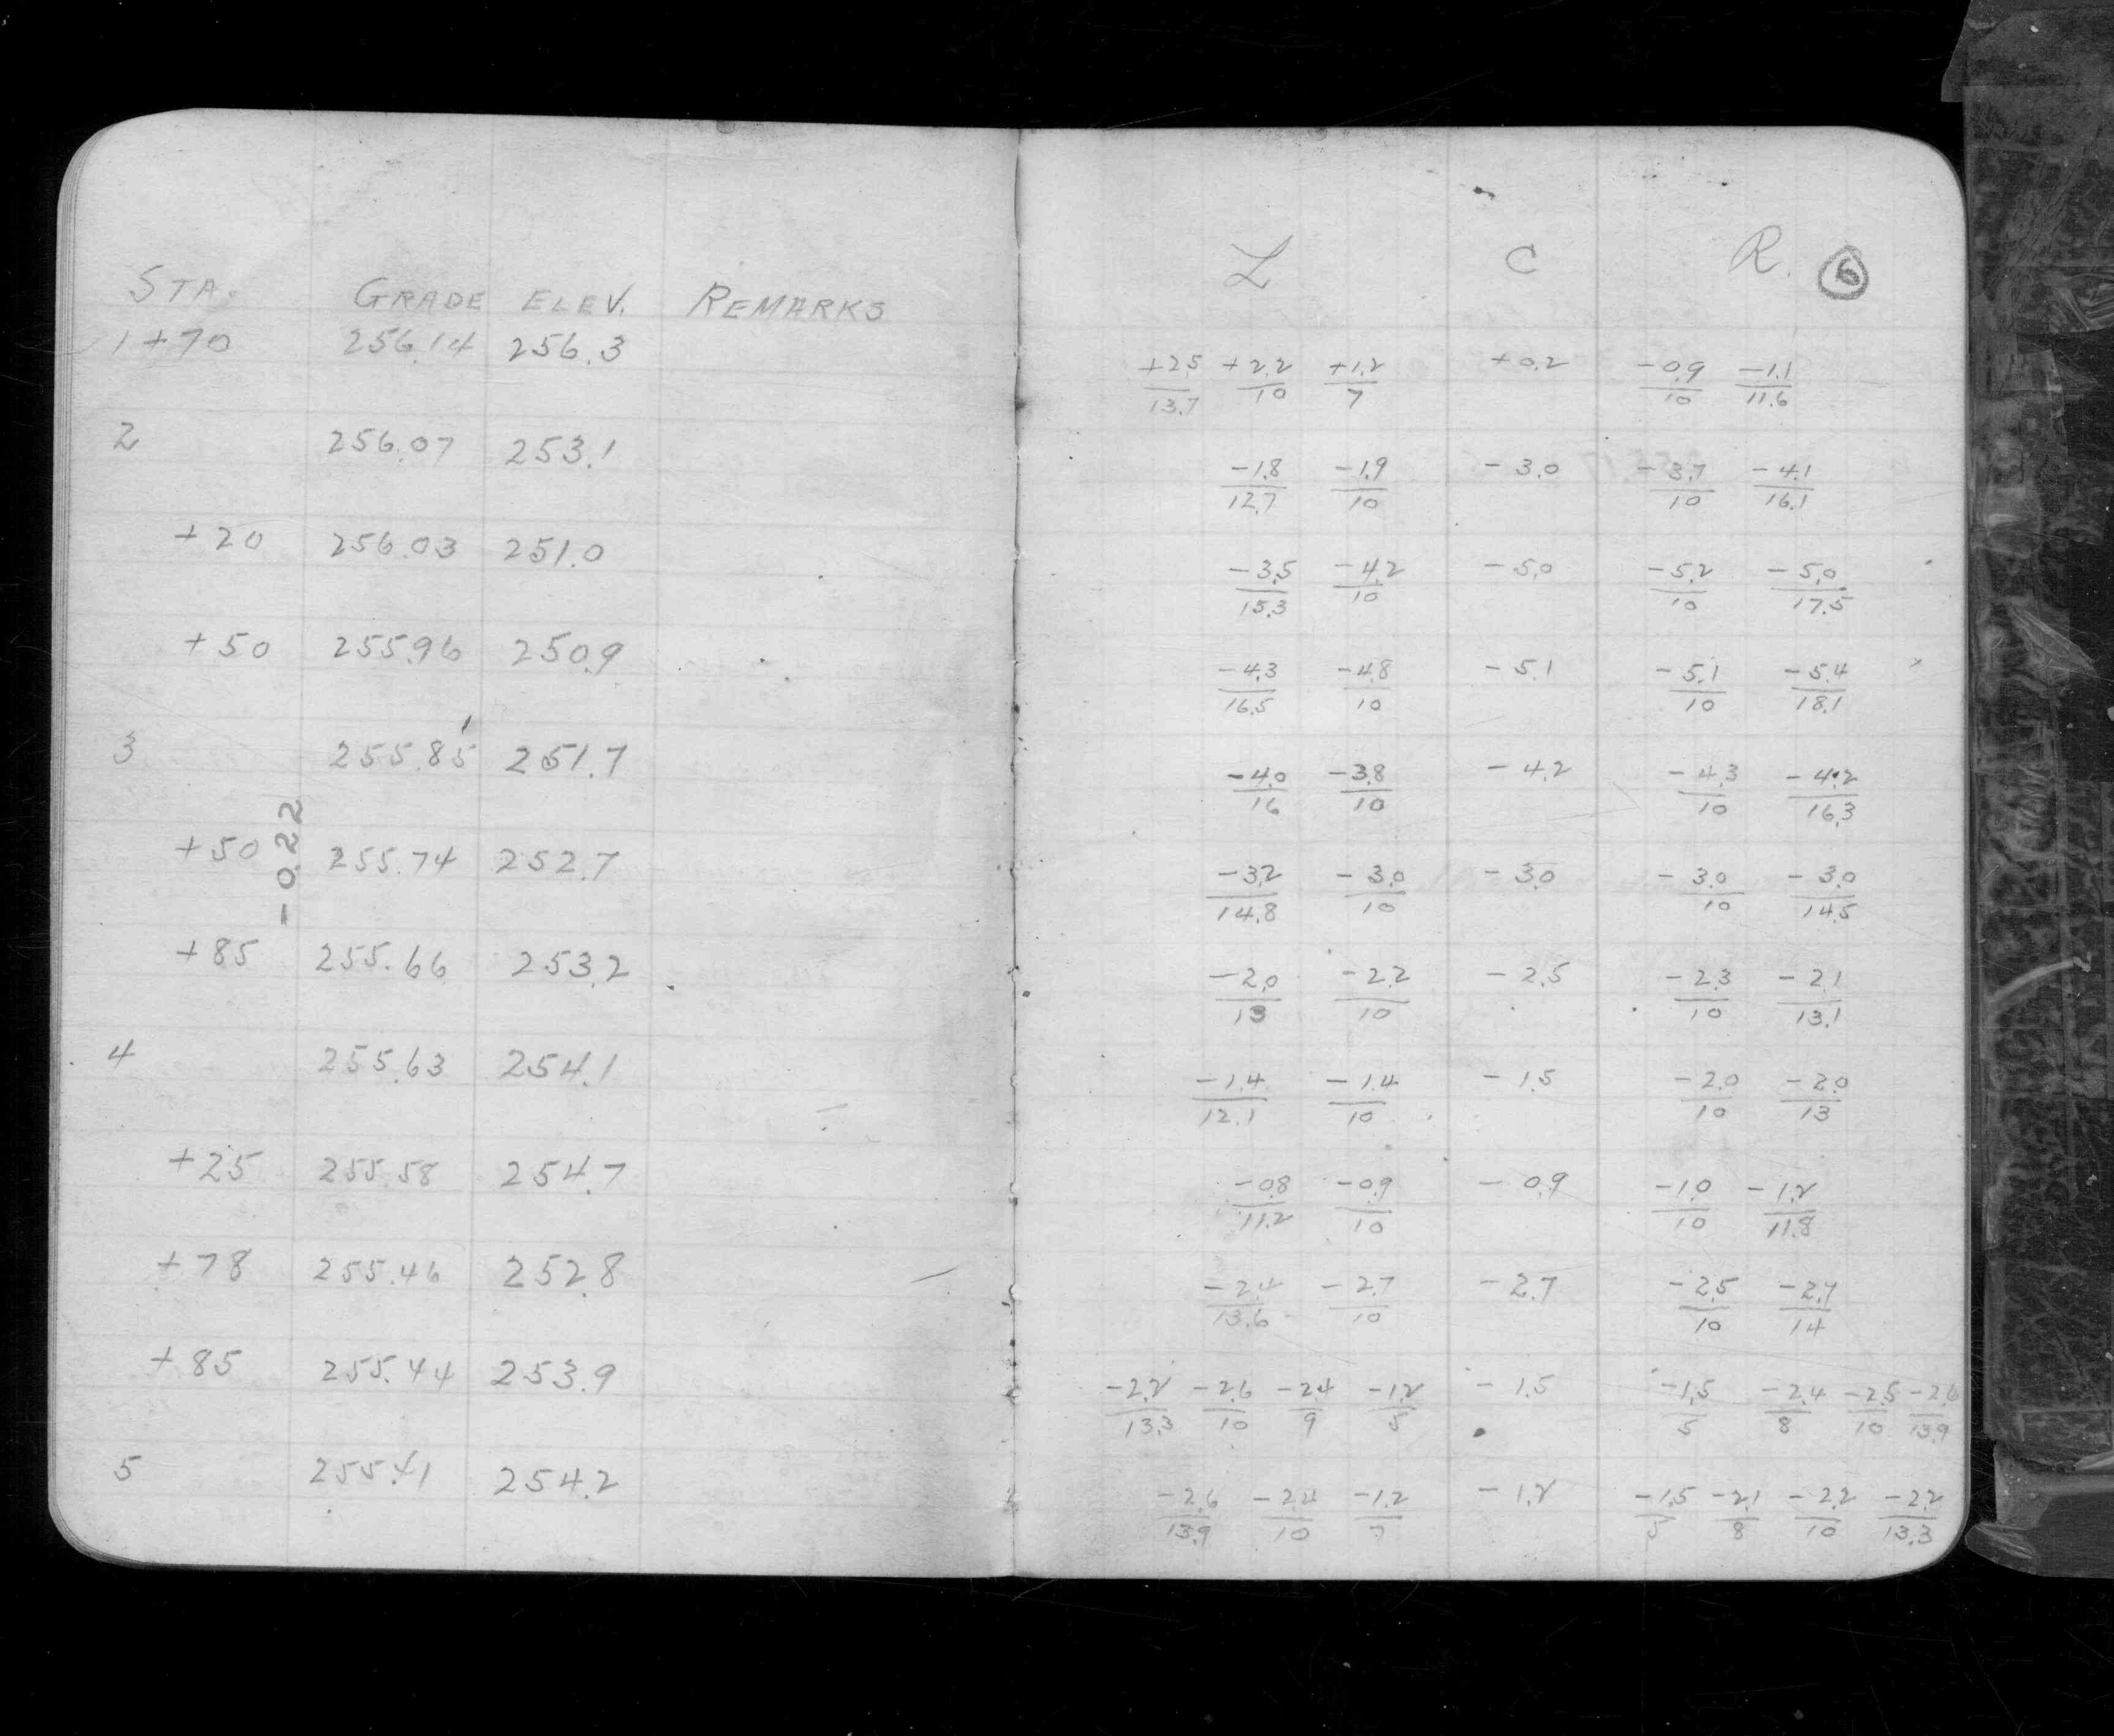 STA. GRADE ELEV. REMARKS
1+70 256.14 256.3
2 256.07 253.1
+20 256.03 251.0
+50 255.96 250.9
3 255.85 251.7
-0.22
+50 255.74 252.7
+85 255.66 253.2
4 255.63 254.1
+25 255.58 254.7
+78 255.46 252.8
+85 255.44 253.9
5 255.41 254.2
L C R. 6
+2.5 +2.2 +1.2 +0.2 -0.9 -1.1
13.7 10 7 10 11.6
-1.8 -1.9 -3.0 -3.7 -4.1
12.7 10 10 16.1
-3.5 -4.2 -5.0 -5.2 -5.0
15.3 10 10 17.5
-4.3 -4.8 -5.1 -5.1 -5.4
16.5 10 10 18.1
-4.0 -3.8 -4.2 -4.3 -4.2
16 10 10 16.3
-3.2 -3.0 -3.0 -3.0 -3.0
14.8 10 10 14.5
-2.0 -2.2 -2.5 -2.3 -2.1
13 10 10 13.1
-1.4 -1.4 -1.5 -2.0 -2.0
12.1 10 10 13
-0.8 -0.9 -0.9 -1.0 -1.2
11.2 10 10 11.8
-2.4 -2.7 -2.7 -2.5 -2.7
13.6 10 10 14
-2.2 -2.6 -2.4 -1.2 -1.5 -1.5 -2.4 -2.5 -2.6
13.3 10 9 5 5 8 10 13.9
-2.6 -2.4 -1.2 -1.2 -1.5 -2.1 -2.2 -2.2
13.9 10 7 5 8 10 13.3